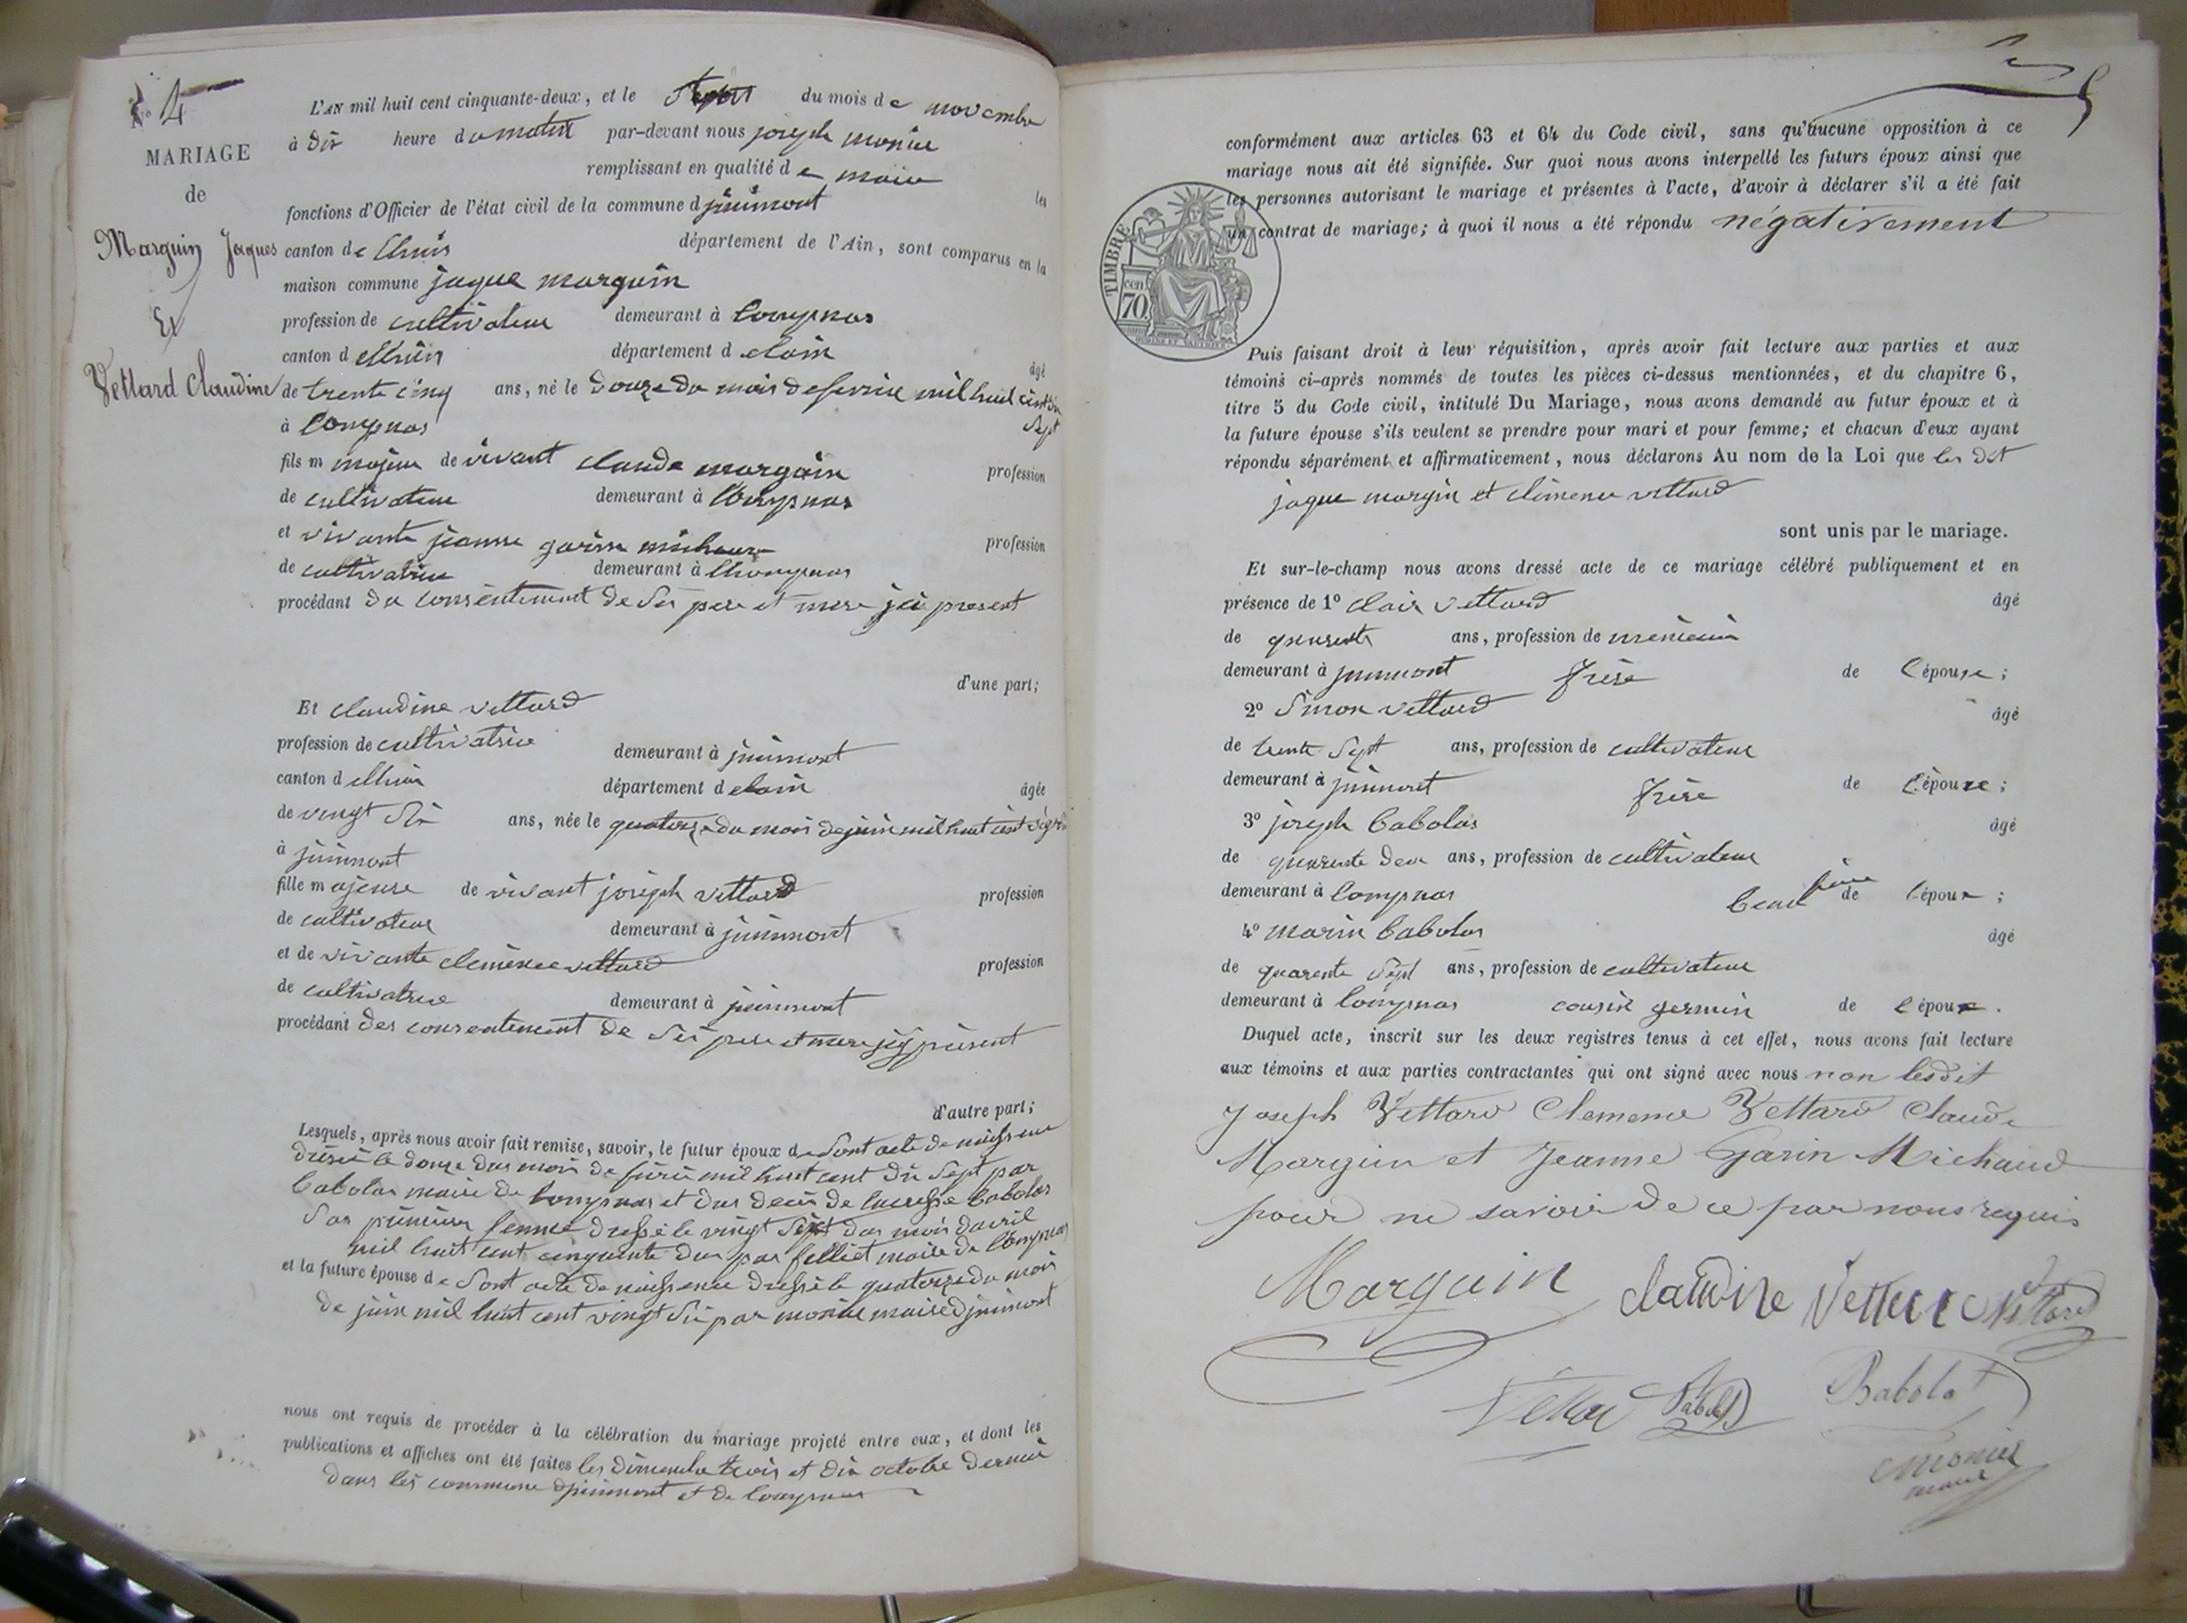 No 4
MARIAGE
de
Marguin Jaques
Et
Vettard Claudine
L'AN mil huit cent cinquante-deux, et le Sept du mois de novembre
à dix heure du matin par-devant nous joseph monier
remplissant en qualité de maire les
fonctions d'Officier de l'état civil de la commune d jujimont
canton de Lhuis département de l'Ain, sont comparus en la
maison commune jaque marguin
profession de cultivateur demeurant à Lompnas
canton d elhuis département d elain âgé
de trente cinq ans, né le douze du mois de fevrier mil huit cent dix
Sept
à Lompnas
fils majeur de vivant claude marguin profession
de cultivateur demeurant à Lompnas
et vivante jeanne garin michaux profession
de cultivatrice demeurant à Lhompnas
procédant du consentement de Ses pere et mere jci present
d'une part;
Et claudine vettard
profession de cultivatrice demeurant à jujimont
canton d elhuis département d elain âgée
de vingt Six ans, née le quatorze du mois de juin mil huit cent vingt Six
à jujimont
fille majeure de vivant joseph vettard profession
de cultivateur demeurant à jujimont
et de vivante clémence vettard profession
de cultivatrice demeurant à jujimont
procédant des consentement de Ses pere et mere jcy présent
d'autre part;
Lesquels, après nous avoir fait remise, savoir, le futur époux de Sont acte de naissence
dréssé le douze dus mois de fevrie mil huit cent dix Sept par
babolas maire de Lompnas et dus deces de babolas
Sas premiere femme dressé le vingt Sept dus mois davril
mil huit cent cinquente dus par felliet maire de Lompnas
et la future épouse de Sont acte de naissence dréssé le quatorze du mois
de juin mil huit cent vingt Six par monier maire djujimont
nous ont requis de procéder à la célébration du mariage projeté entre eux, et dont les
publications et affiches ont été faites les dimenche trois et dix octobre dernié
dans les commune djujimont et de Lompnas
conformément aux articles 63 et 64 du Code civil, sans qu'aucune opposition à ce
mariage nous ait été signifiée. Sur quoi nous avons interpellé les futurs époux ainsi que
les personnes autorisant le mariage et présentes à l'acte, d'avoir à déclarer s'il a été fait
un contrat de mariage; à quoi il nous a été répondu négativement
TIMBRE
cen
70
Puis faisant droit à leur réquisition, après avoir fait lecture aux parties et aux
témoins ci-après nommés de toutes les pièces ci-dessus mentionnées, et du chapitre 6,
titre 5 du Code civil, intitulé Du Mariage, nous avons demandé au futur époux et à
la future épouse s'ils veulent se prendre pour mari et pour femme; et chacun d'eux ayant
répondu séparément et affirmativement, nous déclarons Au nom de la Loi que les dit
jaque margin et clémence vettard
sont unis par le mariage.
Et sur-le-champ nous avons dressé acte de ce mariage célébré publiquement et en
présence de 1o clair vettard âgé
de quarente ans, profession de
demeurant à jujimont frère de Lépouse;
2o Simon vettard âgé
de trente Sept ans, profession de cultivateur
demeurant à jujimont frère de Lépouse;
3o joseph babolas âgé
de quarente deu ans, profession de cultivateur
demeurant à Lompnas beau frère de Lépoux;
4o marin babolas âgé
de quarente Sept ans, profession de cultivateur
demeurant à Lompnas cousin germin de Lépoux.
Duquel acte, inscrit sur les deux registres tenus à cet effet, nous avons fait lecture
aux témoins et aux parties contractantes qui ont signé avec nous non lesdit
Joseph Vettard Clemence Vettard Claude
Marguin et Jeanne Garin Michaud
pour ne savoir de ce par nous requis
Marguin Claudine Vettard Vettard
Babolat
monier
maire